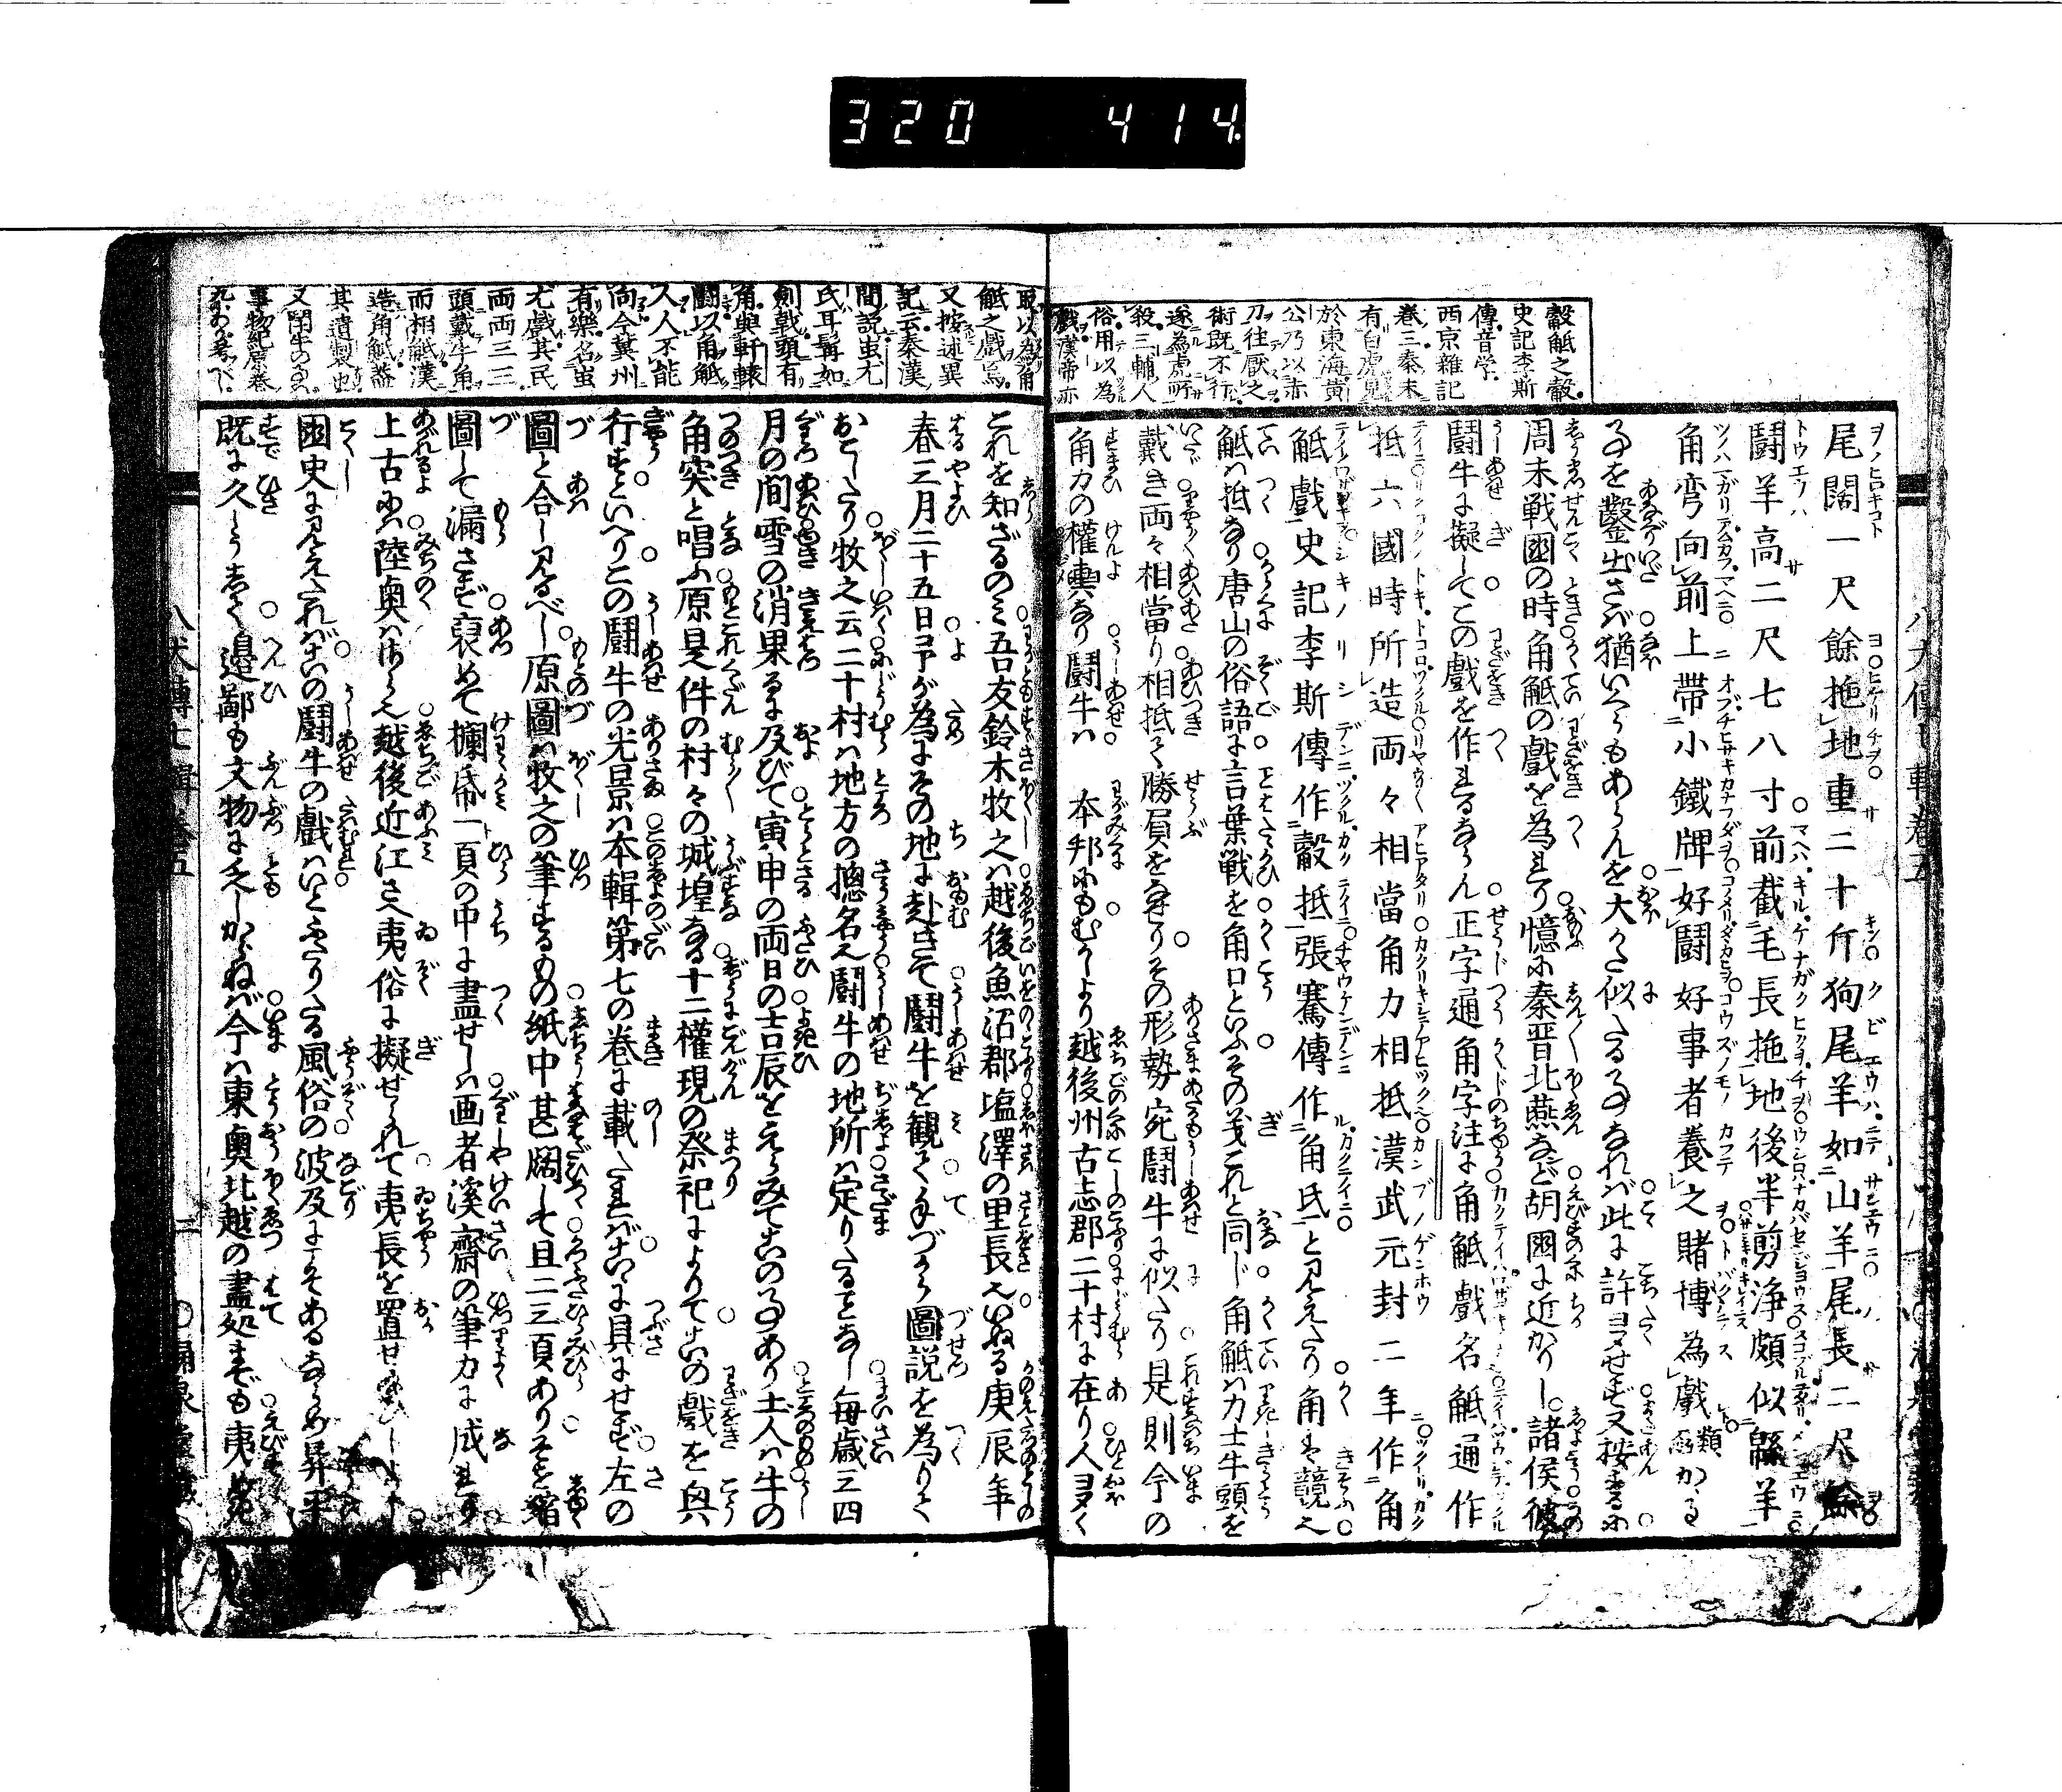 320 414
觳觝之觳
史記李斯
傳音学
西京雜記
巻三秦末
有白虎見
於東海黄
公乃以赤
刀往厭之
術既不行
遂為虎所
殺三輔人
俗用以為
戯漢帝亦
尾闊一尺餘拖地重二十斤狗尾羊如山羊尾長二尺餘
闘羊高二尺七八寸前截毛長拖地後半剪浄頗似緜羊
角弯向前上帯小鐵牌好闘好事者養之賭博為戯類かゝる
事を鑿出さバ猶いくらもあらんを大かた似たる事なれバ此に許多せず又按するに
周末戦國の時角觝の戯を為れり憶ふ秦晋北燕など胡國に近かりし諸侯彼
闘牛に擬してこの戯を作れるならん正字通角字注に角觝戯名觝通作
抵六國時所造両々相當角力相抵漢武元封二年作角
觝戯史記李斯傳作觳抵張騫傳作角氐と見えたり角は競也
觝ハ抵なり唐山の俗語に言葉戦を角口といふその義これと同じ角觝ハ力士牛頭を
戴き両々相當り相抵て勝負をなせりその形勢宛闘牛に似たり是則今の
角力の權輿なり闘牛ハ 本邦にもむかしより越後州古志郡二十村に在り人多く
取以為角
觝之戯焉
又按述異
記云秦漢
間説蚩尤
氏耳鬢如
劍戟頭有
角與軒轅
闘以角觝
人人不能
向今冀州
有樂名蚩
尤戯其民
両両三三
頭戴牛角
而相觝漢
造角觝蓋
其遺製也
又闘牛の事
事物紀原巻
九にあり考べし
これを知ざるのミ吾友鈴木牧之ハ越後魚沼郡塩澤の里長也いぬる庚辰年
春三月二十五日予が為にその地に赴きて闘牛を観て手づから圖説を為りて
おこしたり牧之云二十村ハ地方の摠名也闘牛の地所ハ定りたることなし毎歳三四
月の間雪の消果るに及びて寅申の両日の吉辰をえらみてこの事あり土人ハ牛の
角突と唱ふ原是件の村々の城隍なる十二權現の祭祀によりてこの戯を興
行すといへりこの闘牛の光景ハ本輯第七の巻に載たれバこゝに具にせず左の
圖と合し見るべし原圖ハ牧之の筆するもの紙中甚闊して且二三頁ありそを縮
圖して漏さず裒めて欄帋一頁の中に盡せしハ画者溪齋の筆力に成れり
上古ハ陸奥ハさらん也越後近江さへ夷俗に擬せられて夷長を置せ給ひしよし
國史に見えたれバこの闘牛の戯ハいとふりたる風俗の波及にこそあるならめ昇平
既に久しうして邊鄙も文物に乏しからねバ今ハ東奥北越の盡処までも夷めかぬ